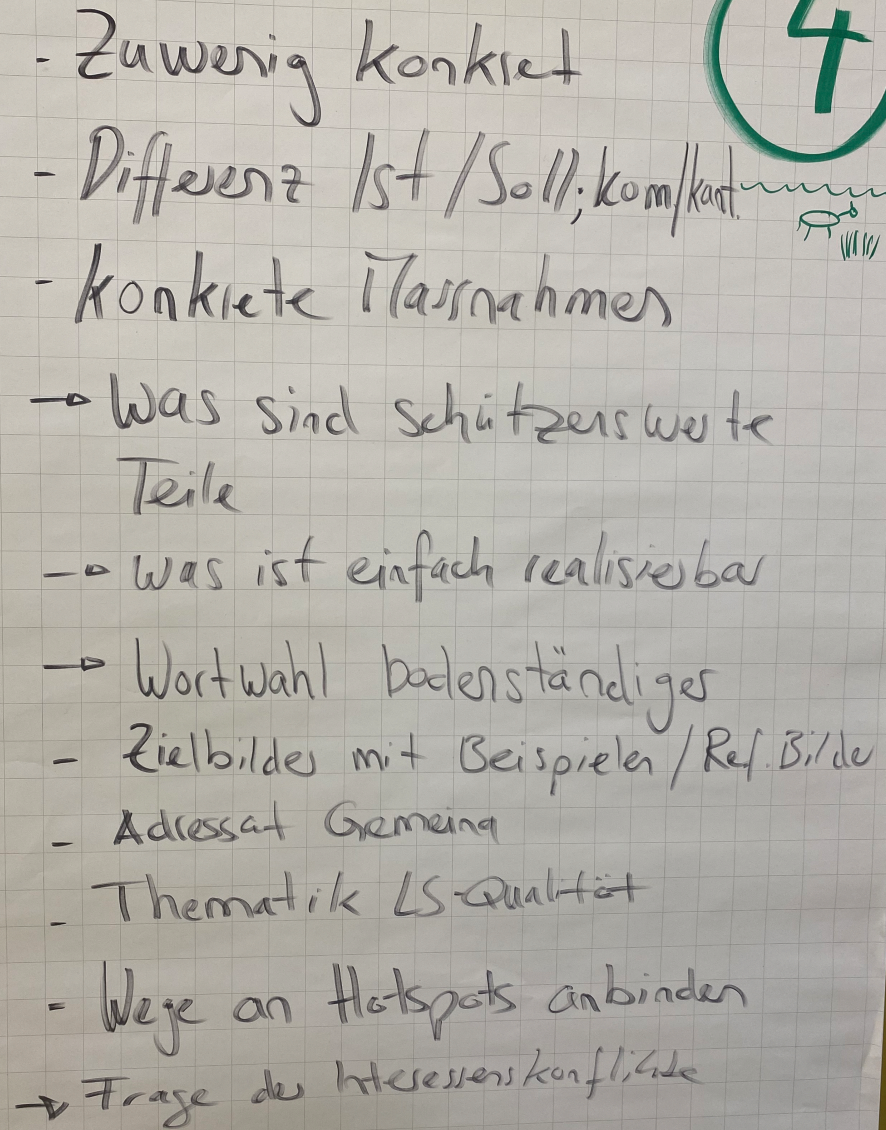 4
- Zuwenig konkret
- Differenz Ist / Soll; kom/kant.
- konkrete Massnahmen
→ Was sind schützenswerte
Teile
→ Was ist einfach realisierbar
→ Wortwahl bodenständiger
- Zielbilder mit Beispielen / Ref. Bilder
- Adressat Gemeind
- Thematik LS-Qualität
- Wege an Hotspots anbinden
→ Frage der Interessenskonflikte